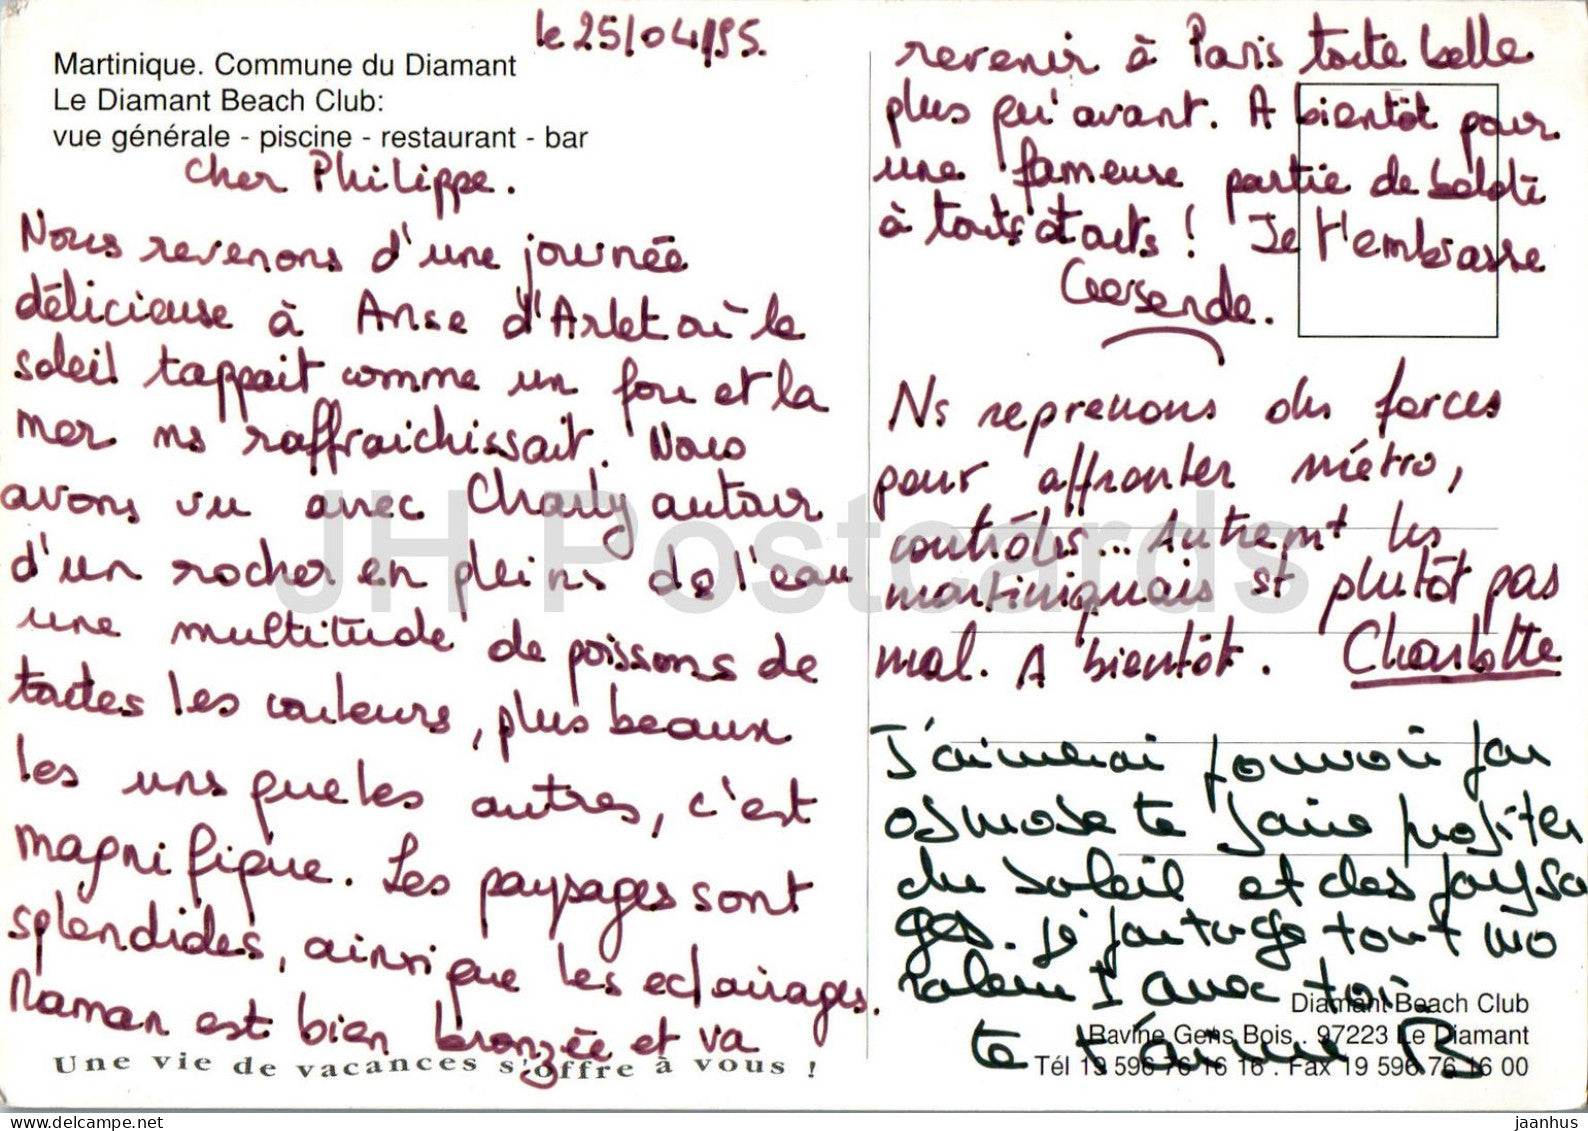 le 25/04/95.
Martinique. Commune du Diamant
Le Diamant Beach Club:
vue générale - piscine - restaurant - bar
Cher Philippe.
Nous revenons d'une journée
délicieuse à Anse d'Arlet où le
soleil tappait comme un fou et la
mer ns raffraichissait. Nous
avons vu avec Charly autour
d'un rocher en pleins de l'eau
une multitude de poissons de
toutes les couleurs, plus beaux
les uns que les autres, c'est
magnifique. Les paysages sont
splendides, ainsi que les eclairages.
Maman est bien bronzée et va
Une vie de vacances s'offre à vous !
revenir à Paris toute belle
plus qu'avant. A bientôt pour
une fameuse partie de
à ! Je t'embrasse
Gersende.
Ns reprenons des forces
pour affronter métro,
contrôles... Autremt les
martiniquais st plutôt pas
mal. A bientôt. Charlotte
J'aimerai pouvoir par
osmose te faire profiter
du soleil et des paysa
ges. Je partage tout mo
ralemt avec toi
te
Diamant Beach Club
Ravine Gens Bois . 97223 Le Diamant
Tél 19 596 76 16 16 . Fax 19 596 76 16 00
JH Postcards
jaanhus
www.delcampe.net